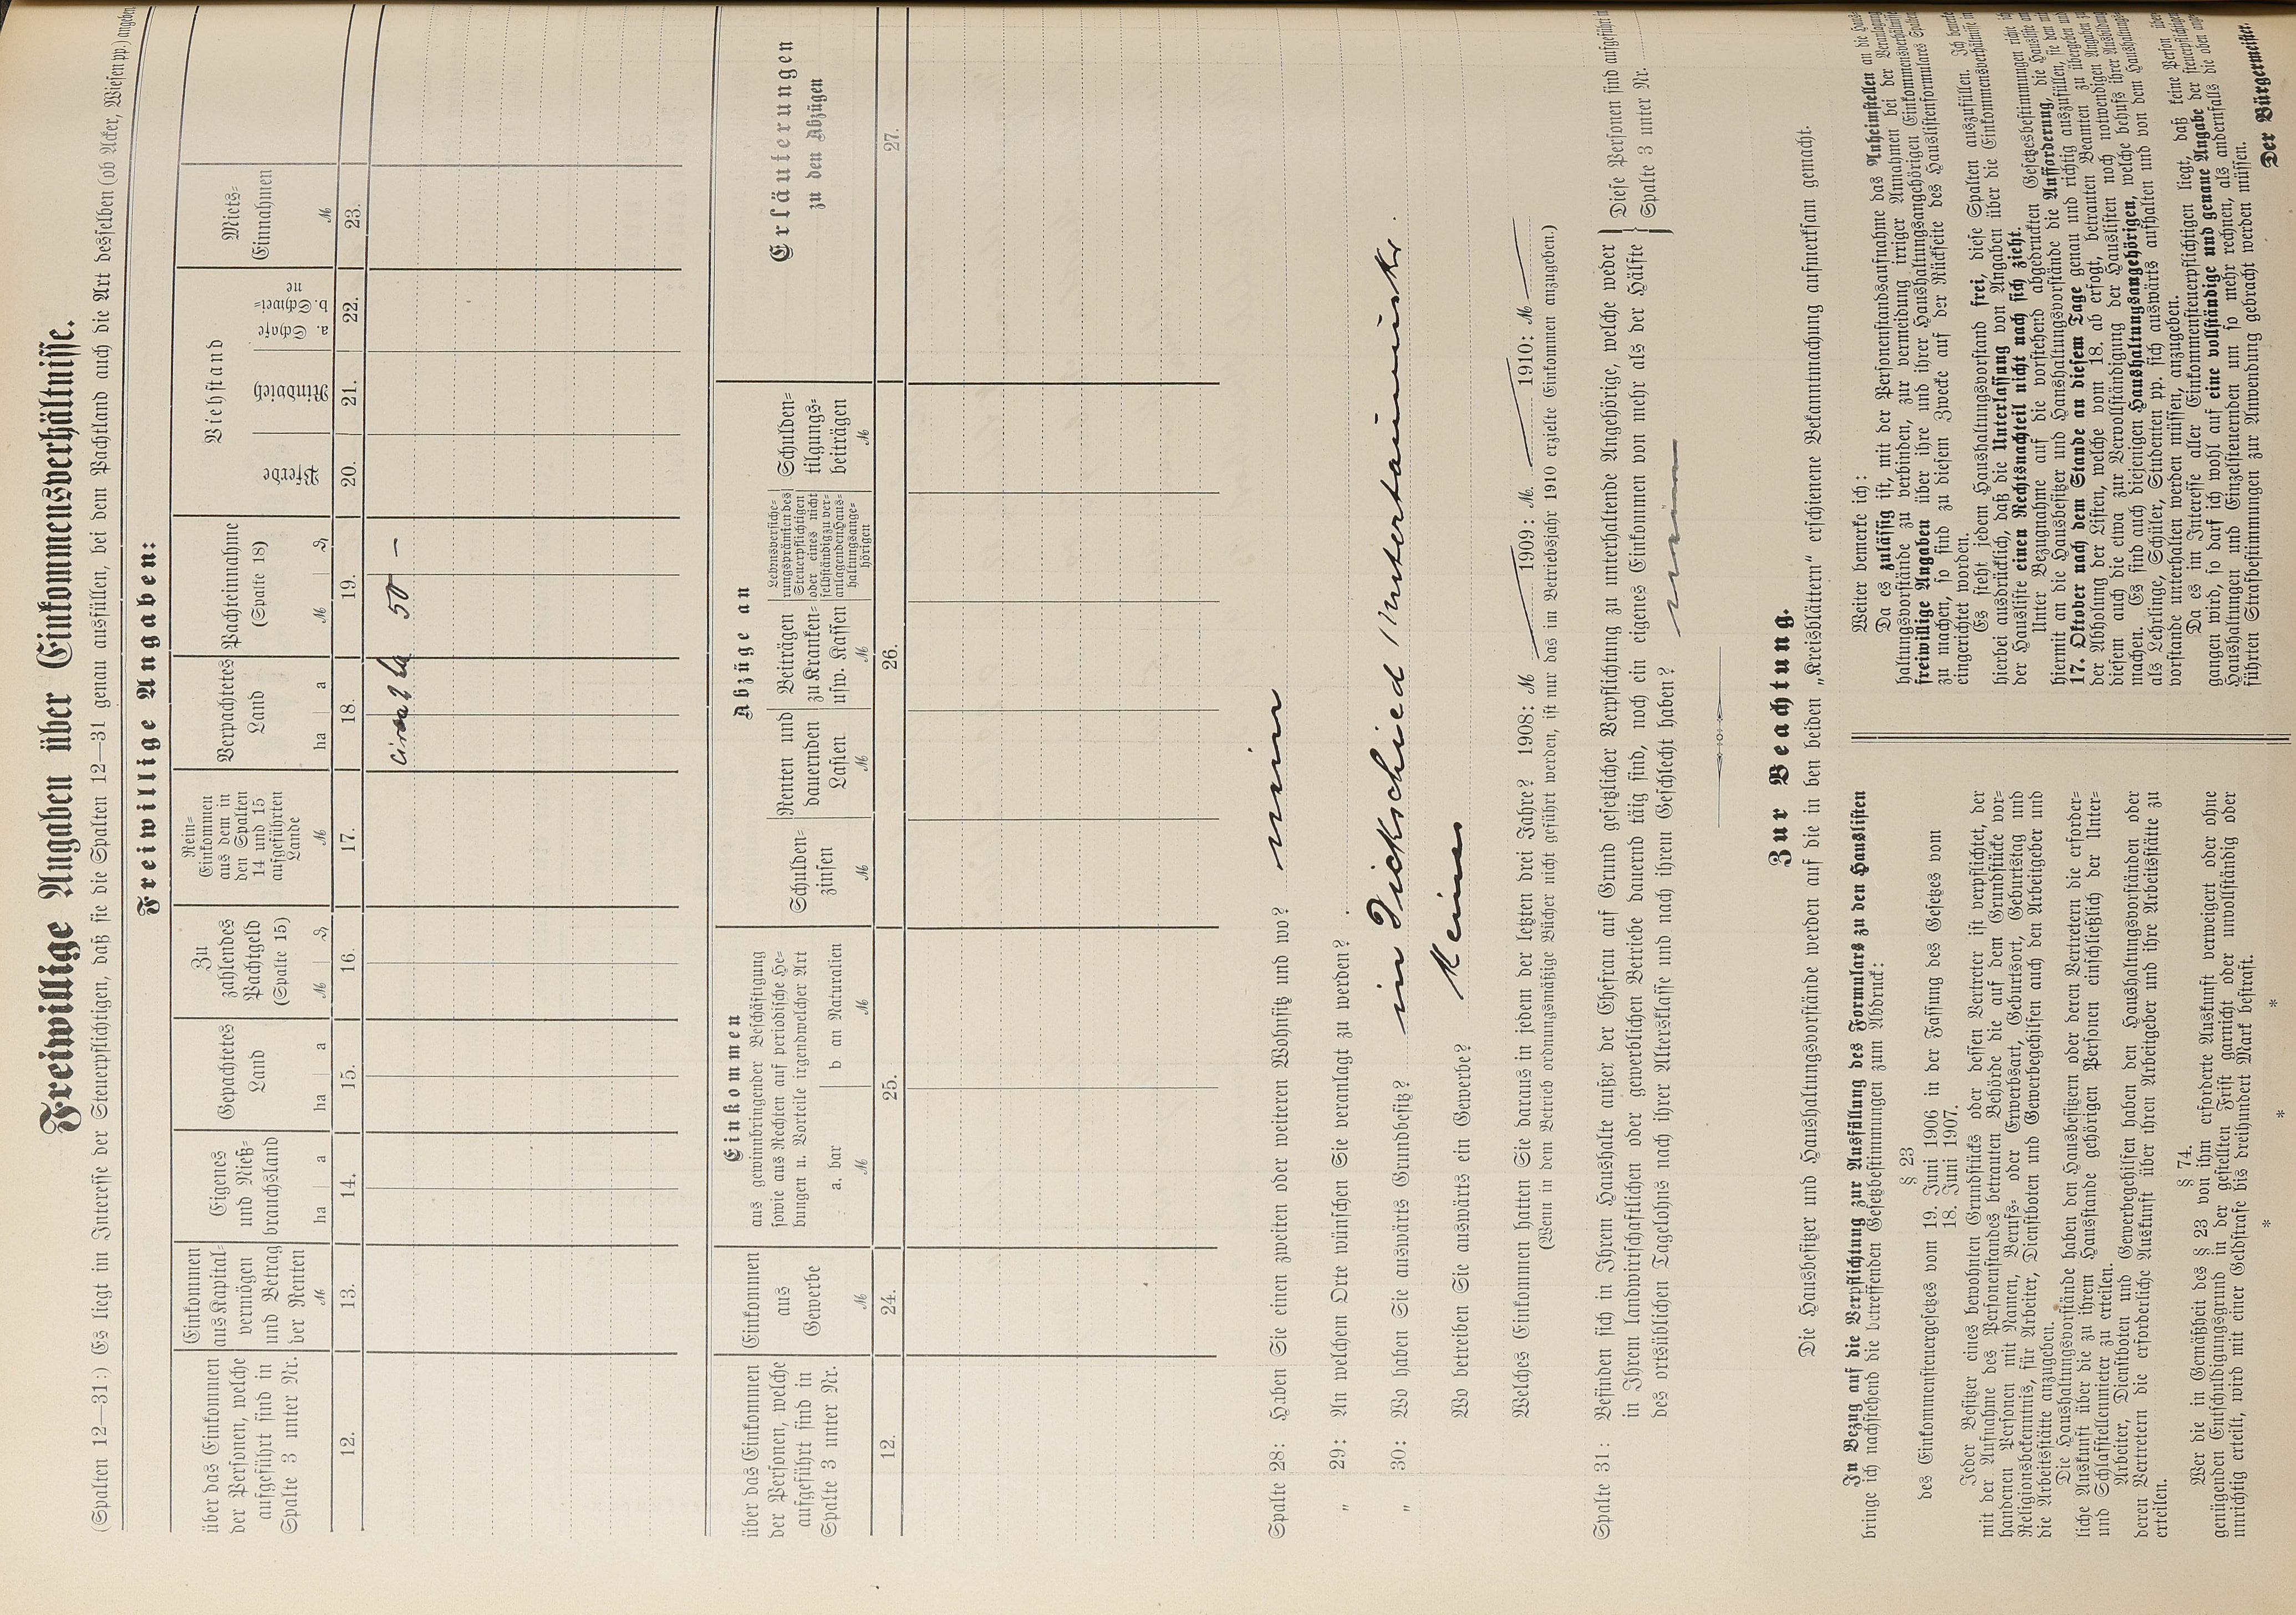 Freiwillige Angaben über Einkommensverhältnisse.
(Spalten 12—31:) (Es liegt im Interesse der Steuerpflichtigen, daß sie die Spalten 12—31 genau ausfüllen, bei dem Pachtland auch die Art desselben (ob Acker, Wiesen pp.) angeben
Freiwillige Angaben:
über das Einkommen der Personen, welche aufgeführt sind in Spalte 3 unter Nr.
Einkommen aus Kapitalvermögen und Betrag der Renten M
Eigenes und Nießbrauchsland ha a
Gepachtetes Land ha a
Zu zahlendes Pachtgeld (Spalte 15) M ₰
Rein-Einkommen aus dem in den Spalten 14 und 15 aufgeführten Lande M
Verpachtetes Land ha a
Pachteinnahme (Spalte 18) M ₰
Viehstand
Pferde
Rindvieh
a. Schafe b. Schweine
Miets-Einnahmen M
12. 13. 14. 15. 16. 17. 18. 19. 20. 21. 22. 23.
circa 2 ha 50 —
über das Einkommen der Personen, welche aufgeführt sind in Spalte 3 unter Nr.
Einkommen aus Gewerbe M
Einkommen
aus gewinnbringender Beschäftigung
sowie aus Rechten auf periodische He-
bungen u. Vorteile irgendwelcher Art
a. bar M
b an Naturalien M
Abzüge an
Schuldenzinsen M
Renten und dauernden Lasten M
Beiträgen zu Kranken- usw. Kassen M
Lebensversicherungsprämien des Steuerpflichtigen oder eines nicht selbständig zu veranlagenden Haushaltungsangehörigen
Schuldentilgungsbeträgen M
Erläuterungen
zu den Abzügen
12. 24. 25. 26. 27.
Spalte 28: Haben Sie einen zweiten oder weiteren Wohnsitz und wo? nein
„ 29: An welchem Orte wünschen Sie veranlagt zu werden?
„ 30: Wo haben Sie auswärts Grundbesitz? in Dickschied Untertaunuskr.
Wo betreiben Sie auswärts ein Gewerbe? Keines
Welches Einkommen hatten Sie daraus in jedem der letzten drei Jahre? 1908: M — 1909: M. — 1910: M —
(Wenn in dem Betrieb ordnungsmäßige Bücher nicht geführt werden, ist nur das im Betriebsjahr 1910 erzielte Einkommen anzugeben.)
Spalte 31: Befinden sich in Ihrem Haushalte außer der Ehefrau auf Grund gesetzlicher Verpflichtung zu unterhaltende Angehörige, welche weder
in Ihrem landwirtschaftlichen oder gewerblichen Betriebe dauernd tätig sind, noch ein eigenes Einkommen von mehr als der Hälfte
des ortsüblichen Tagelohns nach ihrer Altersklasse und nach ihrem Geschlecht haben? nein
Diese Personen sind aufgeführt in
Spalte 3 unter Nr.
Zur Beachtung.
Die Hausbesitzer und Haushaltungsvorstände werden auf die in ben beiden „Kreisblättern“ erschienene Bekanntmachung aufmerksam gemacht.
In Bezug auf die Verpflichtung zur Ausfüllung des Formulars zu den Hauslisten
bringe ich nachstehend die betreffenden Gesetzbestimmungen zum Abdruck:
§ 23
des Einkommensteuergesetzes vom 19. Juni 1906 in der Fassung des Gesetzes vom
18. Juni 1907.
Jeder Besitzer eines bewohnten Grundstücks oder dessen Vertreter ist verpflichtet, der
mit der Aufnahme des Personenstandes betrauten Behörde die auf dem Grundstücke vor-
handenen Personen mit Namen, Berufs- oder Erwerbsart, Geburtsort, Geburtstag und
Religionsbekenntnis, für Arbeiter, Dienstboten und Gewerbegehilfen auch den Arbeitgeber und
die Arbeitsstätte anzugeben.
Die Haushaltungsvorstände haben den Hausbesitzern oder deren Vertretern die erforder-
liche Auskunft über die zu ihrem Hausstande gehörigen Personen einschließlich der Unter-
und Schlafstellenmieter zu erteilen.
Arbeiter, Dienstboten und Gewerbegehilfen haben den Haushaltungsvorständen oder
deren Vertretern die erforderliche Auskunft über ihren Arbeitgeber und ihre Arbeitsstätte zu
erteilen.
§ 74.
Wer die in Gemäßheit des § 23 von ihm erforderte Auskunft verweigert oder ohne
genügenden Entschuldigungsgrund in der gestellten Frist garnicht oder unvollständig oder
unrichtig erteilt, wird mit einer Geldstrafe bis dreihundert Mark bestraft.
* * *
Weiter bemerke ich:
Da es zulässig ist, mit der Personenstandsaufnahme das Anheimstellen an die Haus-
haltungsvorstände zu verbinden, zur vermeidung irriger Annahmen bei der Veranlagung
freiwillige Angaben über ihre und ihrer Haushaltungsangehörigen Einkommensverhältnisse
zu machen, so sind zu diesem Zwecke auf der Rückseite des Hauslistenformulares Spalten
eingerichtet worden.
Es steht jedem Haushaltungsvorstand frei, diese Spalten auszufüllen. Ich bemerke
hierbei ausdrücklich, daß die Unterlassung von Angaben über die Einkommensverhältnisse in
der Hausliste einen Rechtsnachteil nicht nach sich zieht.
Unter Bezugnahme auf die vorstehend abgedruckten Gesetzesbestimmungen richte ich
hiermit an die Hausbesitzer und Haushaltungsvorstände die Aufforderung, die Hausliste am
17. Oktober nach dem Stande an diesem Tage genau und richtig auszufüllen, sie dem mit
der Abholung der Listen, welche vom 18. ab erfogt, betrauten Beamten zu übergeben und
diesem auch die etwa zur Vervollständigung der Hauslisten noch notwendigen Angaben zu
machen. Es sind auch diejenigen Haushaltungsangehörigen, welche behufs ihrer Ausbildung
als Lehrlinge, Schüler, Studenten pp. sich auswärts aufhalten und von dem Haushaltungs-
vorstande unterhalten werden müssen, anzugeben.
Da es im Interesse aller Einkommensteuerpflichtigen liegt, daß keine Person über-
gangen wird, so darf ich wohl auf eine vollständige und genaue Angabe der steuerpflichtigen
Haushaltungen und Einzelsteuernden um so mehr rechnen, als andernfalls die oben ange-
führten Strafbestimmungen zur Anwendung gebracht werden müssen.
Der Bürgermeister.